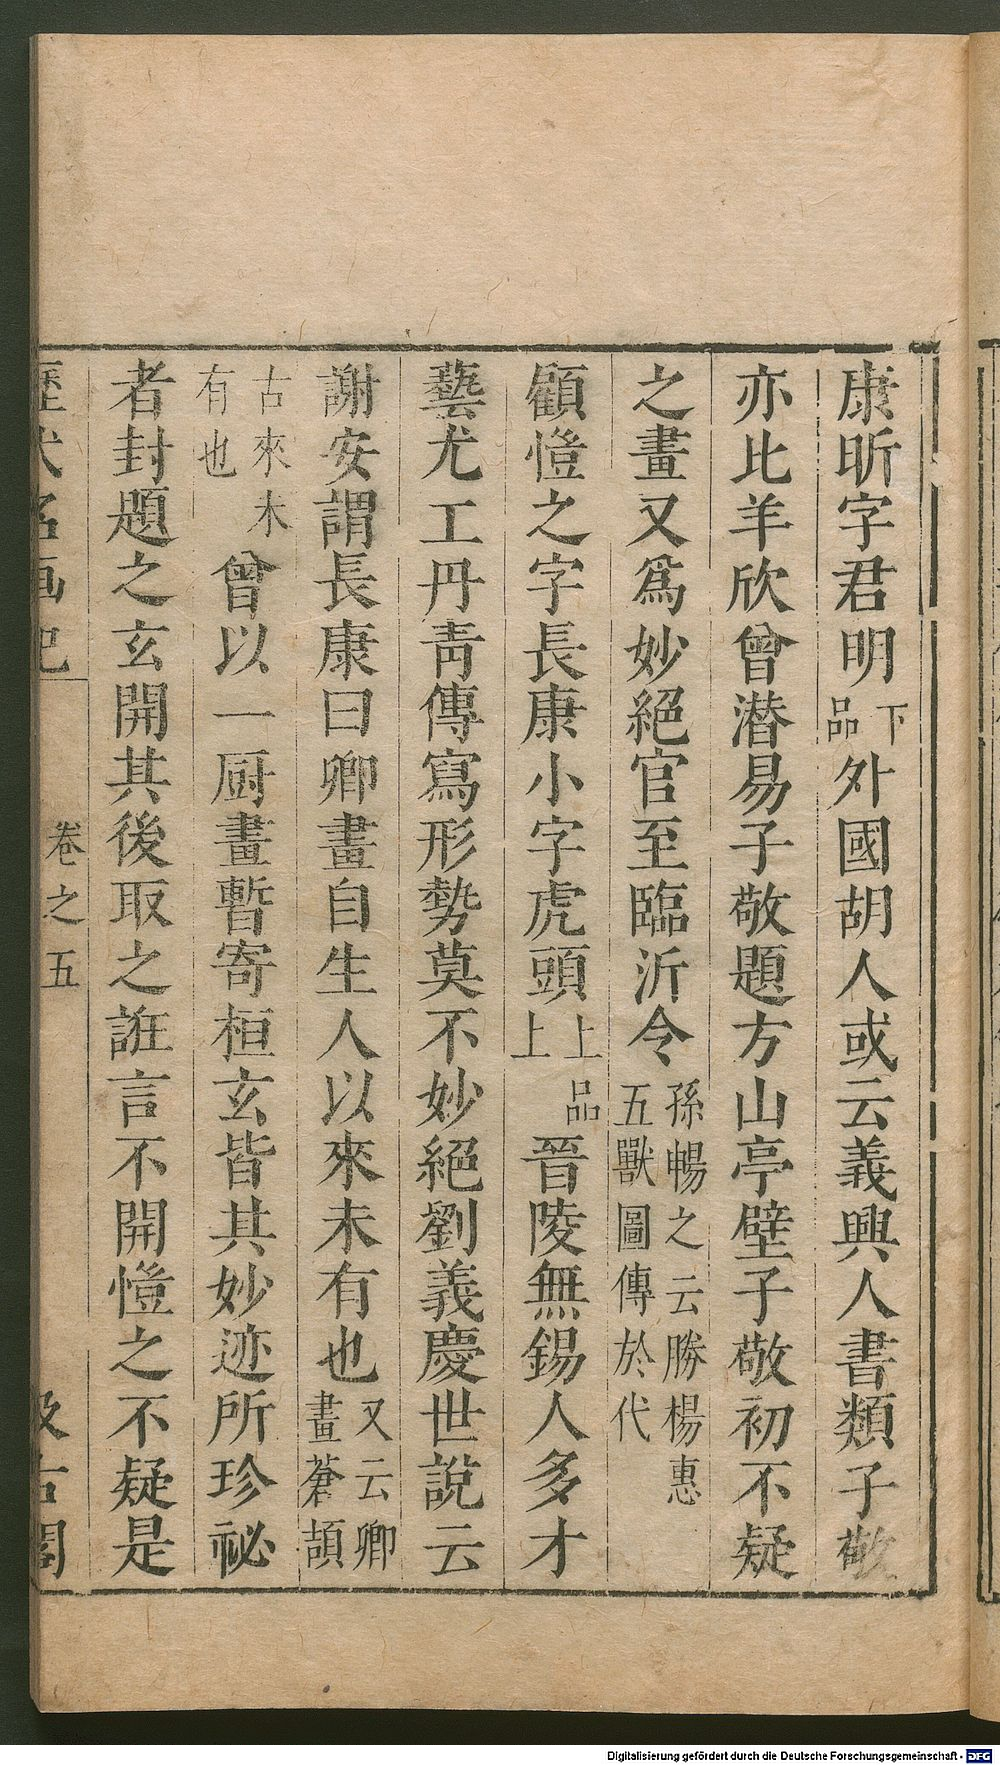 康昕字君明下品外國胡人或云義興人書類子敬
亦比羊欣曾潜易子敬題方山亭壁子敬初不疑
之畫又爲妙絕官至臨沂令孫暢之云勝楊惠五獸圖傳於代
顧愷之字長康小字虎頭上上品晉陵無錫人多才
藝尤工丹靑傳寫形勢莫不妙絕劉義慶世說云
謝安謂長康曰卿畫自生人以來未有也又云卿畫蒼頡
古來未有也曾以一厨畫暫寄桓玄皆其妙迹所珍祕
者封題之玄開其後取之誑言不開愷之不疑是
歷代名画記 卷之五 汲古閣
Digitalisierung gefördert durch die Deutsche Forschungsgemeinschaft - DFG